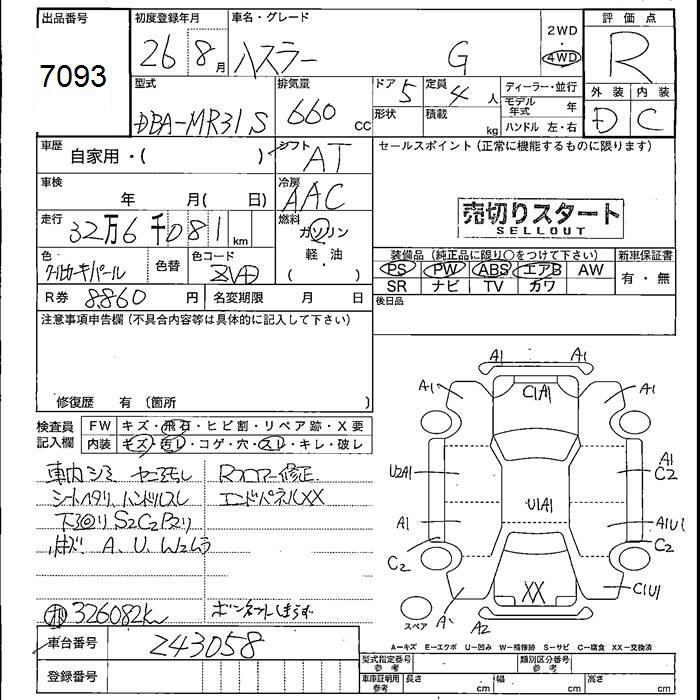 出品番号
7093
初度登録年月
26 8月
車名・グレード
ハスラー G
2WD
4WD
評価点
R
外装 内装
D C
型式
DBA-MR31S
排気量
660 cc
ドア 5
定員 4人
形状
積載 kg
ディーラー・並行
モデル年式 年
ハンドル 左・右
車歴
自家用・( )
シフト
AT
セールスポイント(正常に機能するものに限ります)
車検
年 月( 日)
冷房
AAC
売切りスタート
SELLOUT
走行
32万6千081km
燃料
ガソリン
軽・油
( )
色
クールカーキパール
色替
色コード
ZVD
装備品(純正品に限り○をつけて下さい)
PS PW ABS エアB AW
SR ナビ TV カワ
新車保証書
有・無
R券 8860円
名変期限 月 日
後日品
注意事項申告欄(不具合内容等は具体的に記入して下さい)
修復歴 有(箇所 )
検査員記入欄
FW キズ・飛石・ヒビ割・リペア跡・X要
内装 キズ・汚レ・コゲ・穴・スレ・キレ・破レ
車内シミ ヤニ汚れ
シートヘタリ、ハンドルスレ
下回り S2C2
A、U、W2ムラ
Rフロアー修正
エンドパネルXX
326082km
車台番号
243058
登録番号
A1 A1
A1 C1A1 A1
U2A1 U1A1 A1
C2
A1 A1U1
C2 C2
XX C1U1
スペア A1 A2
A−キズ E−エクボ U−凹み W−補修跡 S−サビ C−腐食 XX−交換済
型式指定番号
参考
類別区分番号
参考
車庫証明用
参考
長さ cm
幅 cm
高さ cm